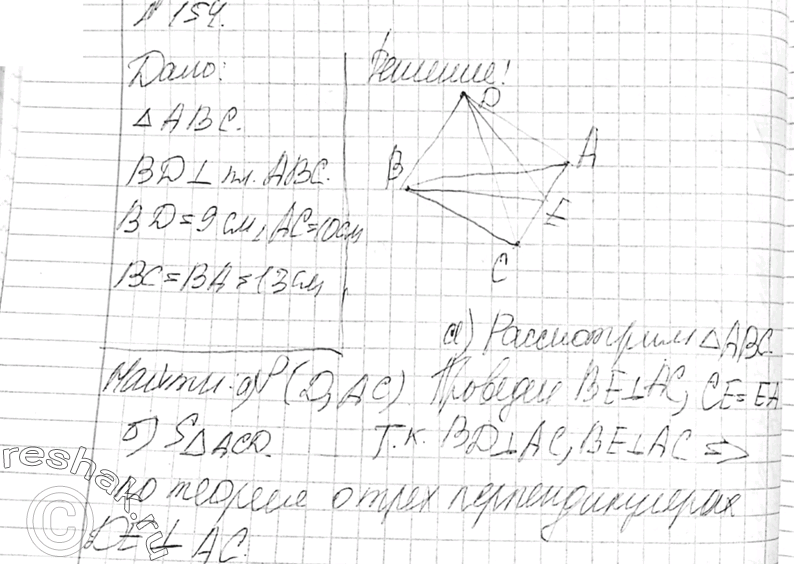 N 154.
Дано:
△ABC.
BD⊥ пл. ABC.
BD=9 см, AC=10см
BC=BA=13 см
Решение!
D
B
A
E
C
а) Рассмотрим △ABC.
Найти: а) P(D, AC). Проведем BE⊥AC, CE=EA
б) S△ACD. Т.к. BD⊥AC, BE⊥AC ⇒
по теореме о трех перпендикулярах
DE ⊥ AC.
© reshak.ru